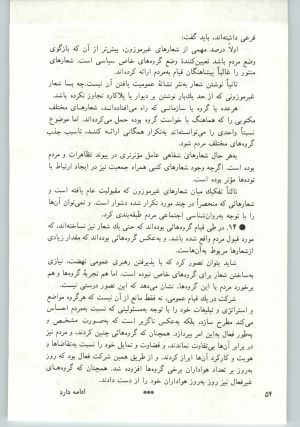 فرعی دانسته‌اند، باید گفت:
اولاً درصد مهمی از شعارهای غیرموزون، بیش‌تر از آن که بازگوی
وضع مردم باشد تعیین‌کنندهٔ وضع گروه‌های خاص سیاسی است. شعارهای
منثور را غالباً پیشاهنگان قیام به‌مردم ارائه کرده‌اند.
ثانیاً نوشتن شعار به‌نثر نشانهٔ عمومیت یافتن آن نیست. چه بسا شعار
غیرموزونی که از حد یك‌بار نوشتن بر دیوار یا پلاکارد تجاوز نکرده باشد.
هرعده یا گروه یا سازمانی، که راه می‌افتاده‌اند، شعارهای مختلف
مکتوبی را که هماهنگ با خواست گروه بوده حمل می‌کرده‌اند. اما موضوع
نسبتاً واحدی را می‌توانسته‌اند به‌تکرار همگانی ارائه کنند، تاسبب جذب
گروه‌های مختلف مردم شود.
به‌هر حال شعارهای شفاهی عامل مؤثرتری در پیوند تظاهرات و مردم
بوده است. اگرچه وجود شعارهای کتبی همراه جمعیت نیز در ایجاد ارتباط با
توده‌ها مؤثر بوده است.
ثالثاً تفکیك میان شعارهای غیرموزون که مقبولیت عام یافته است و
شعارهائی که منحصراً در چند مورد تکرار شده دشوار است. و نمی‌توان آن‌ها
را با توجه به‌روان‌شناسی اجتماعی مردم طبقه‌بندی کرد.
● ۱۴. در طی قیام گروه‌هائی بوده‌اند که حتی یك شعار نیز نساخته‌اند، که
مورد قبول مردم واقع شده باشد. و به‌عکس گروه‌هائی بوده‌اند که مقدار زیادی
ازشعارها مربوط به‌آن‌هاست.
شاید بتوان تصور کرد که با پذیرفتن رهبری عمومی نهضت، نیازی
به‌ساختن شعار برای گروه‌های خاص نبوده است. اما هم تجربهٔ گروه‌ها و هم
برخورد مردم با این گروه‌ها، نشان می‌دهد که این تصور درستی نیست.
شرکت در یك قیام عمومی، نه فقط مانع از آن نیست که هرگروه مواضع
و استراتژی و تبلیغات خود را با توجه به‌مسئولیتی که نسبت به‌مردم احساس
می‌کند مطرح سازد، بلکه به‌عکس ناگزیر است که به‌صورت مشخص و
به‌طور فعال به‌این امر بپردازد. همچنان که گروه‌هائی چنین کردند، و مردم نیز
در برابر آن‌ها بی‌تفاوت نماندند، و قضاوت و تمایل خود را نسبت به‌تقاضاها و
هویت و کارکرد آن‌ها ابراز کردند. و از طریق همین شرکت فعال بود که روز
به‌روز بر تعداد هواداران برخی گروه‌ها افزوده شد. همچنان که گروه‌های
غیرفعال نیز روز به‌روز هواداران خود را از دست دادند.
*** ادامه دارد
۵۴